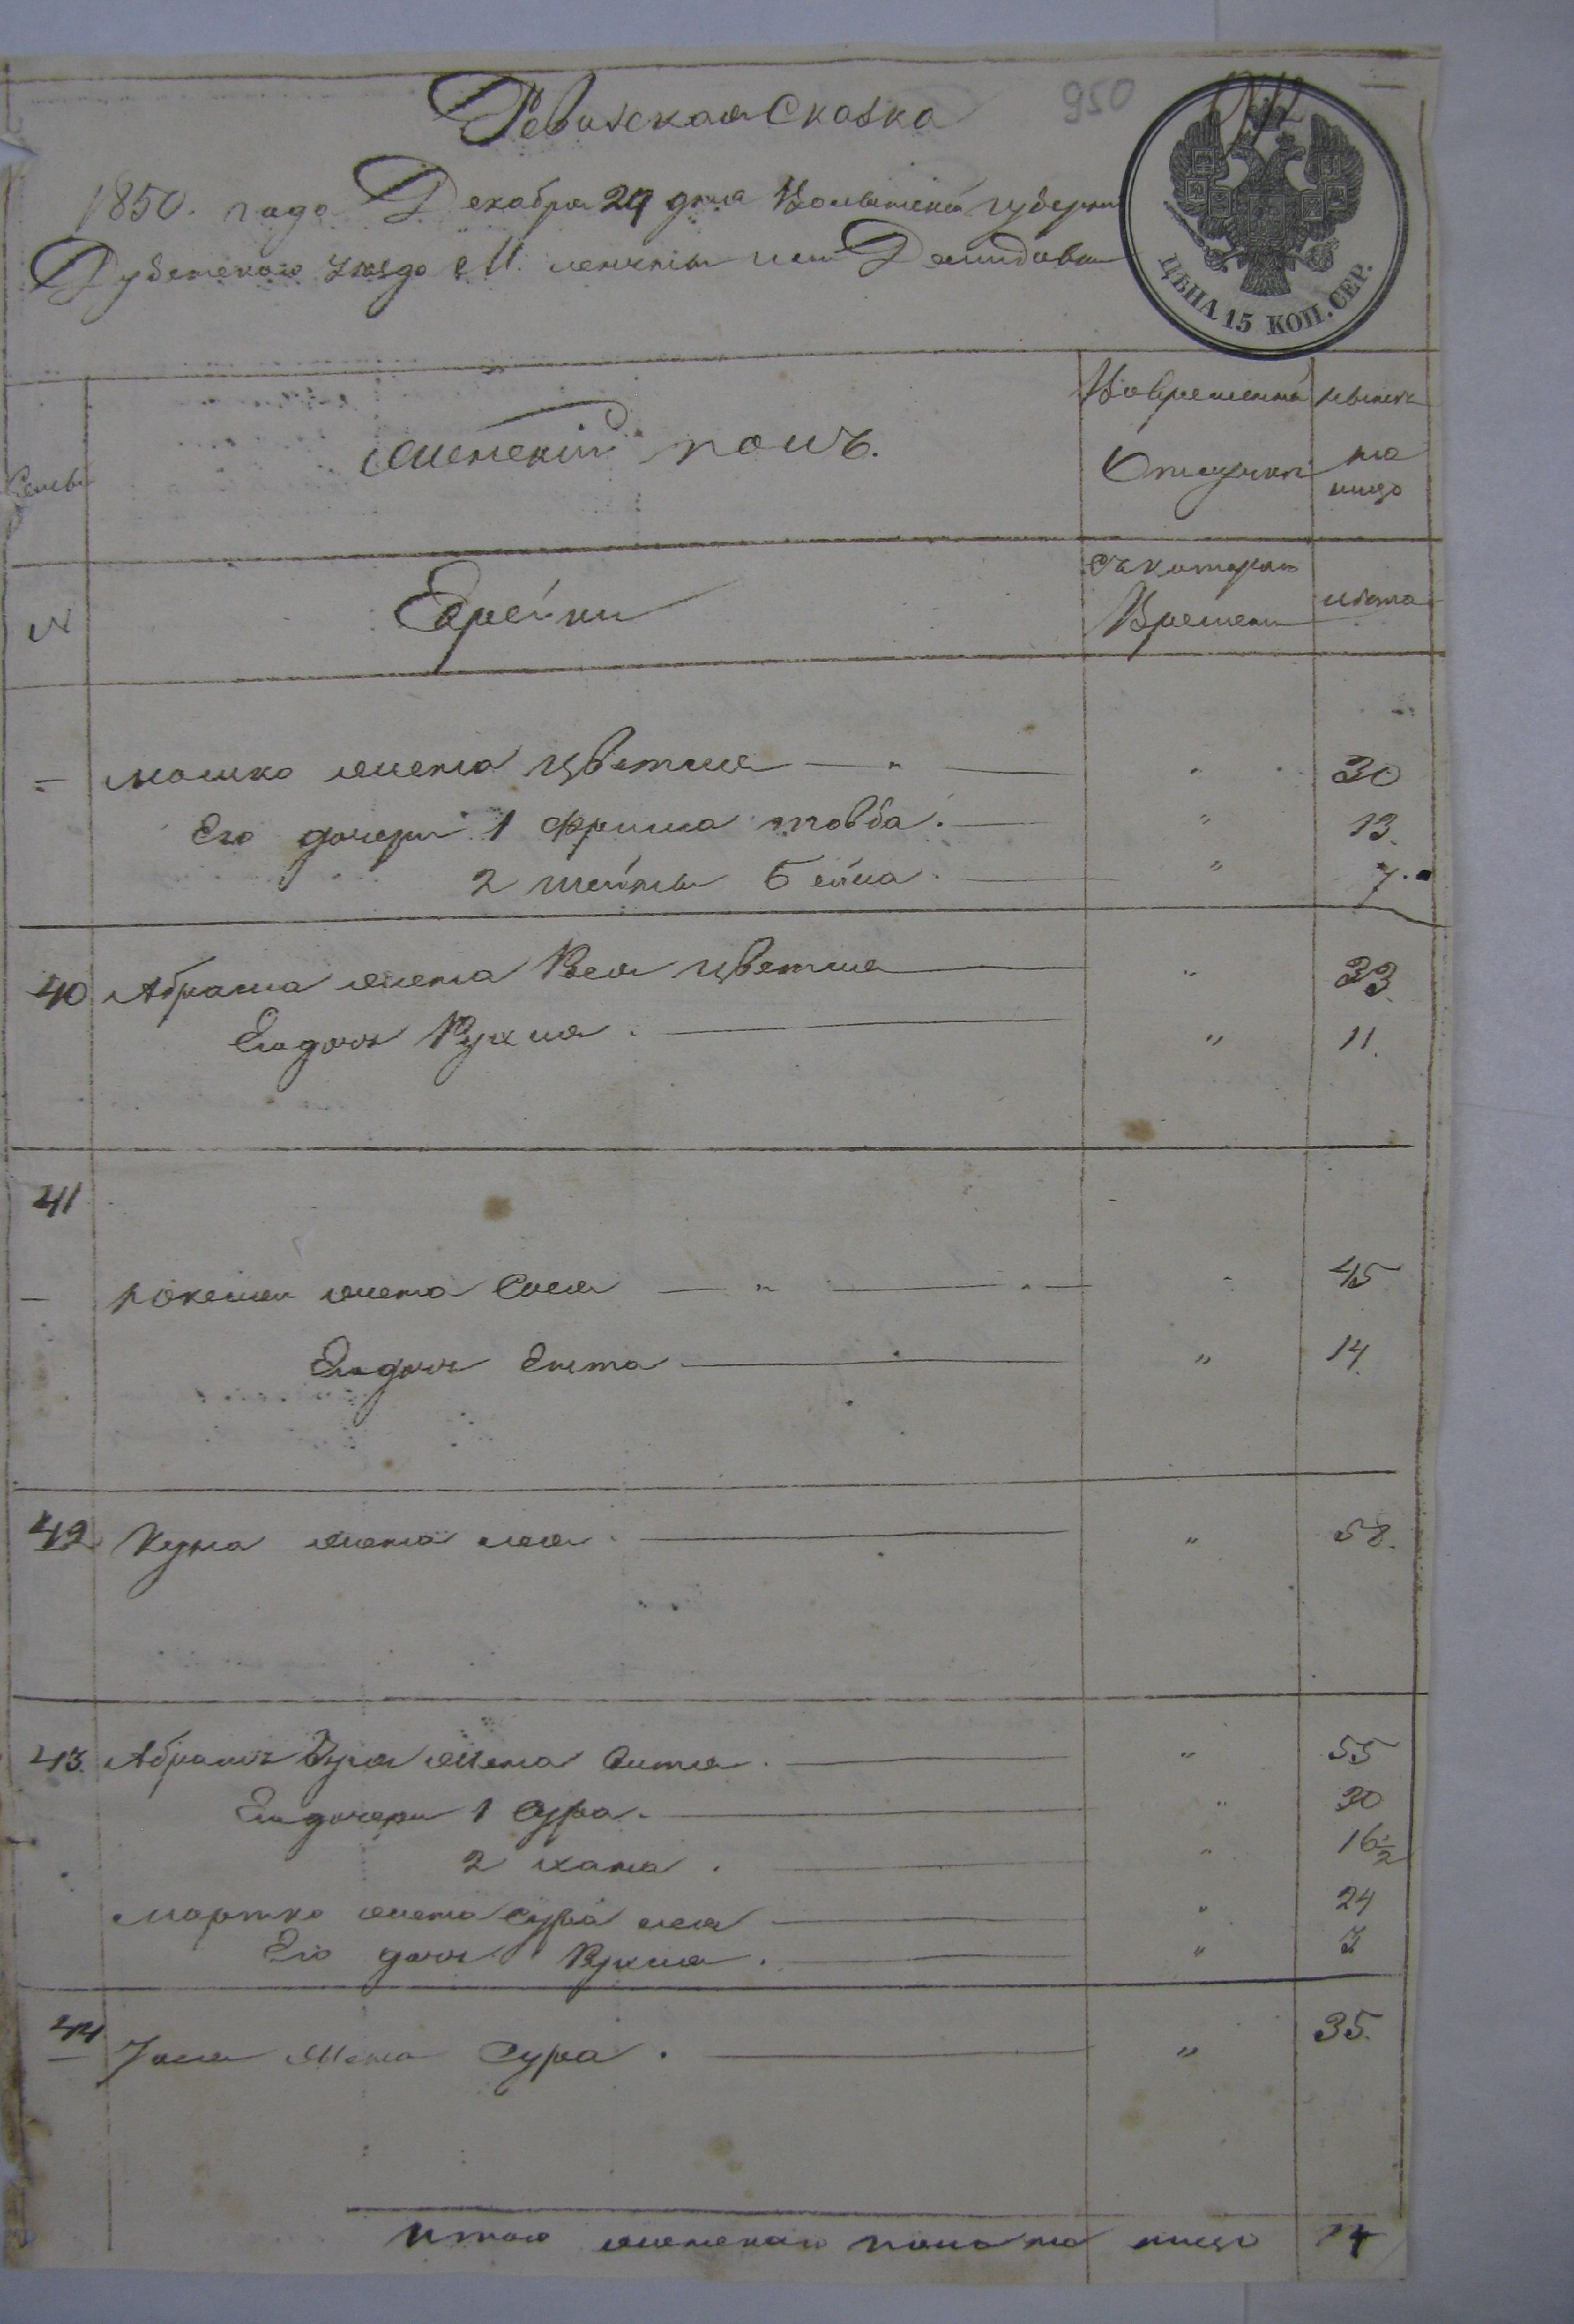 Ревизская Сказка
950
1850. года Декабря 29 дня Волынской губернии
Дубенского уезда М. местечка Демидовки
ЦѢНА 15 КОП. СЕР.
Семьи
женский полъ.
Во временной
Отлучки
ныне
на
лицо
№
Еврейки
Съ которого
Времени
лѣта
Мошко жена цветля " " 30
Его дочери 1 Фрима товба. " 13.
2 Шейндля Бейла. " 7.
40 Абрама жена Бея цветля " 33.
Его дочь Рухля. " 11.
41
жена Сося " 45
Его дочь Ента " 14.
42 жена лея. " 58.
43. Абрамъ жена " 55
Его дочери 1 Сура. " 30
2 хана. " 16 1/2
Мортко жена Сура лея " 24
Его дочь Рухля. " 3
44 жена Сура. " 35.
Итого женского пола на лицо 14